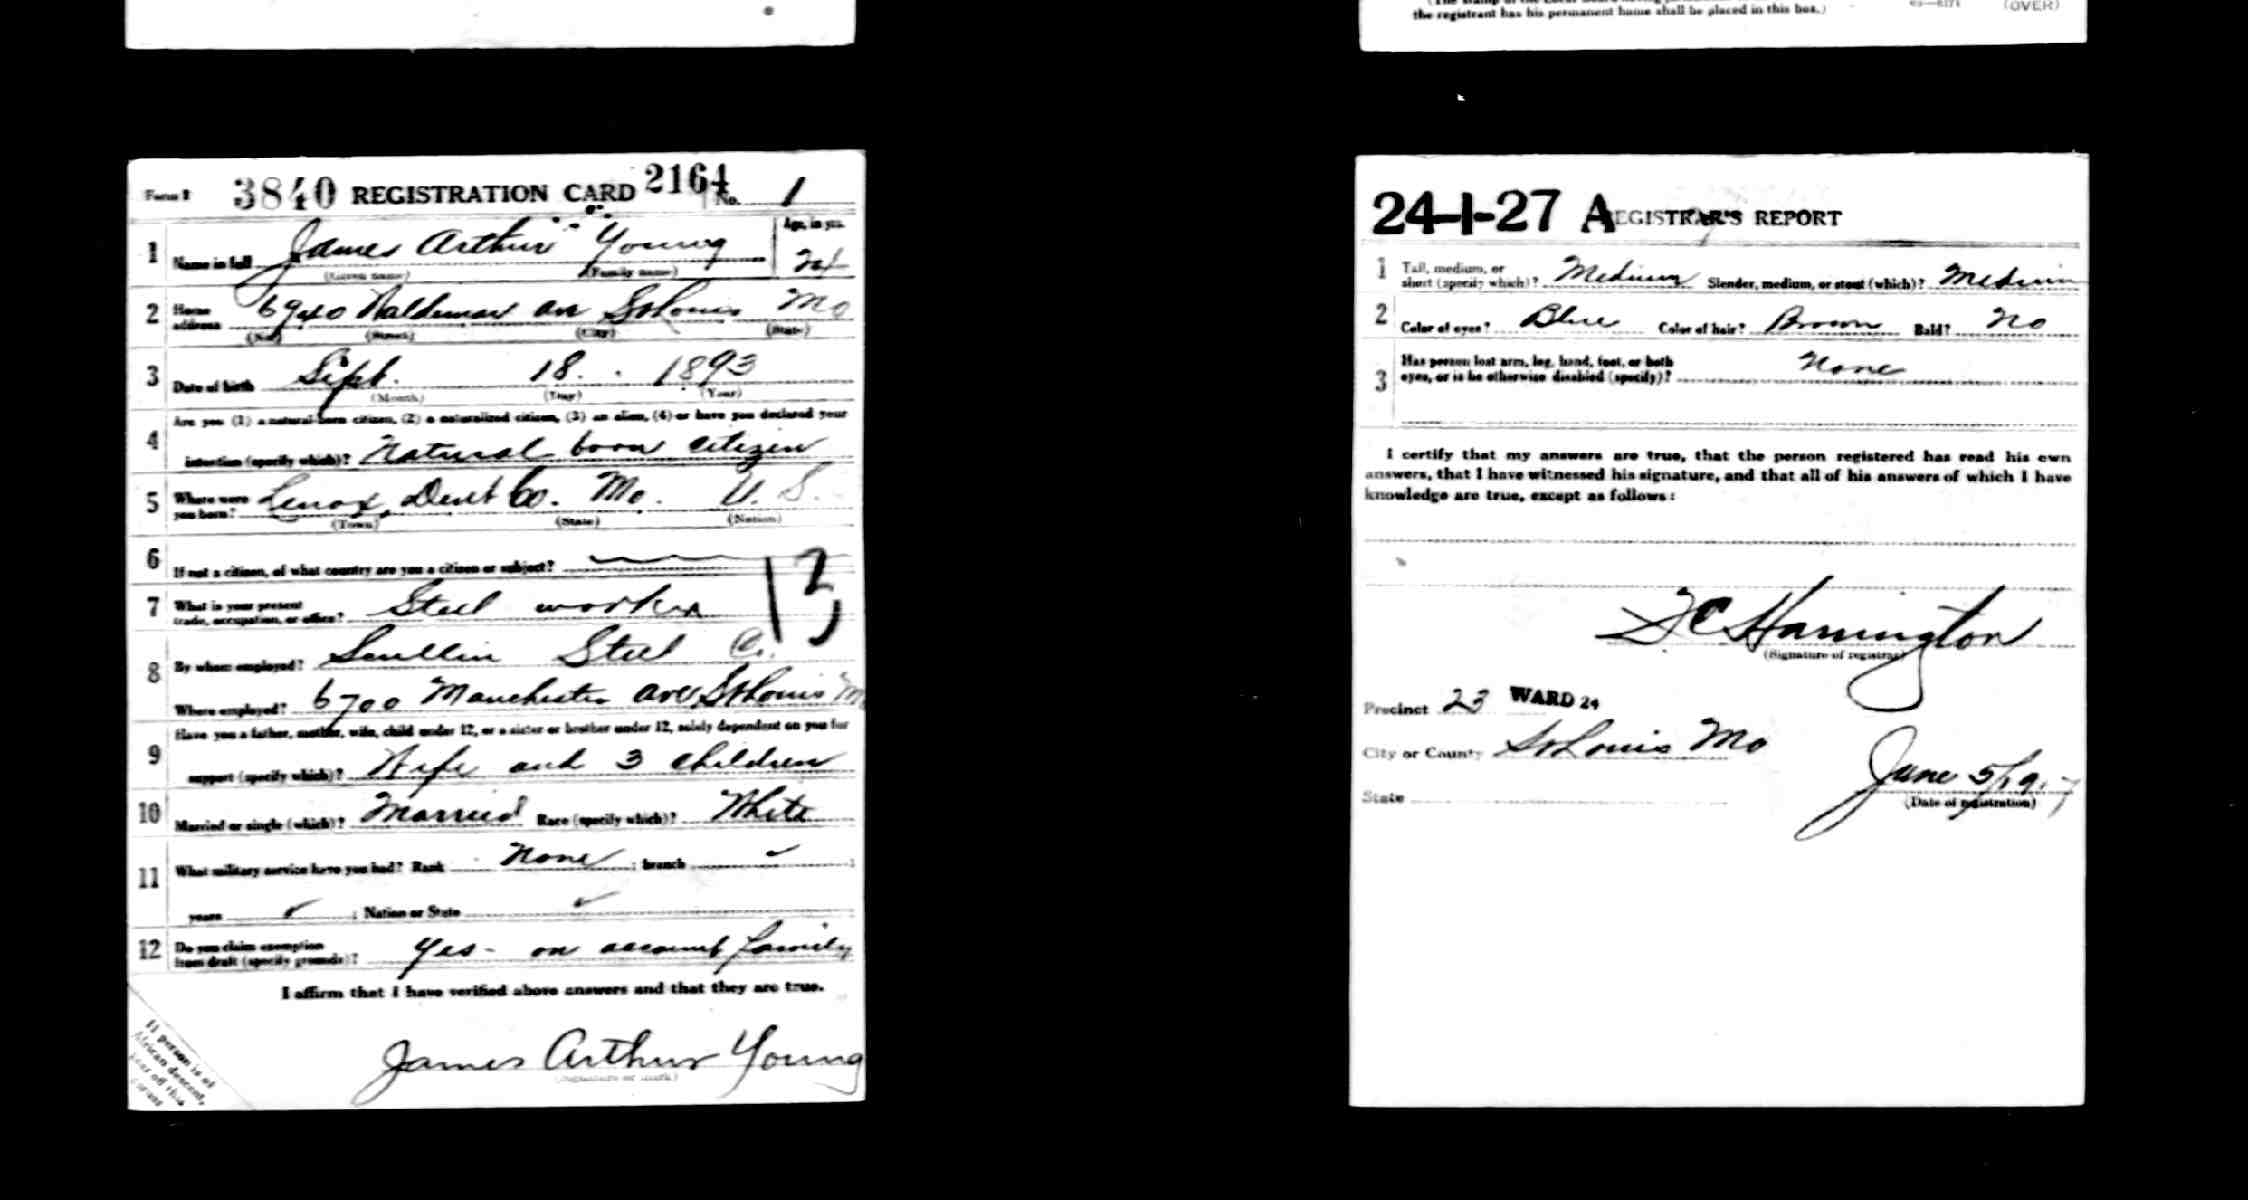 the registrant has his permanent home shall be placed in this box.)
(OVER)
Form 1 3840 REGISTRATION CARD 2164 No. 1
1 Name in full James Arthur Young
(Given name) (Family name)
Age, in yrs.
2 Home address 6940 Waldemar av St Louis Mo
(No.) (Street) (City) (State)
3 Date of birth Sept. 18 1893
(Month) (Day) (Year)
4 Are you (1) a natural-born citizen, (2) a naturalized citizen, (3) an alien, (4) or have you declared your
intention (specify which)? Natural born citizen
5 Where were you born? Lenox, Dent Co. Mo. U. S.
(Town) (State) (Nation)
6 If not a citizen, of what country are you a citizen or subject?
7 What is your present trade, occupation, or office? Steel worker
13
8 By whom employed? Scullin Steel Co.
Where employed? 6700 Manchester ave St Louis M
9 Have you a father, mother, wife, child under 12, or a sister or brother under 12, solely dependent on you for
support (specify which)? Wife and 3 children
10 Married or single (which)? Married Race (specify which)? White
11 What military service have you had? Rank None ; branch ;
years ; Nation or State
12 Do you claim exemption from draft (specify grounds)? Yes - on account family
I affirm that I have verified above answers and that they are true.
James Arthur Young
(Signature or mark)
If person is of
African descent,
tear off this
corner
24-1-27 A REGISTRAR'S REPORT
1 Tall, medium, or short (specify which)? Medium Slender, medium, or stout (which)? Medium
2 Color of eyes? Blue Color of hair? Brown Bald? No
3 Has person lost arm, leg, hand, foot, or both
eyes, or is he otherwise disabled (specify)? None
I certify that my answers are true, that the person registered has read his own
answers, that I have witnessed his signature, and that all of his answers of which I have
knowledge are true, except as follows:
Harrington
(Signature of registrar)
Precinct 23 WARD 24
City or County St Louis Mo
State
June 5/1917
(Date of registration)